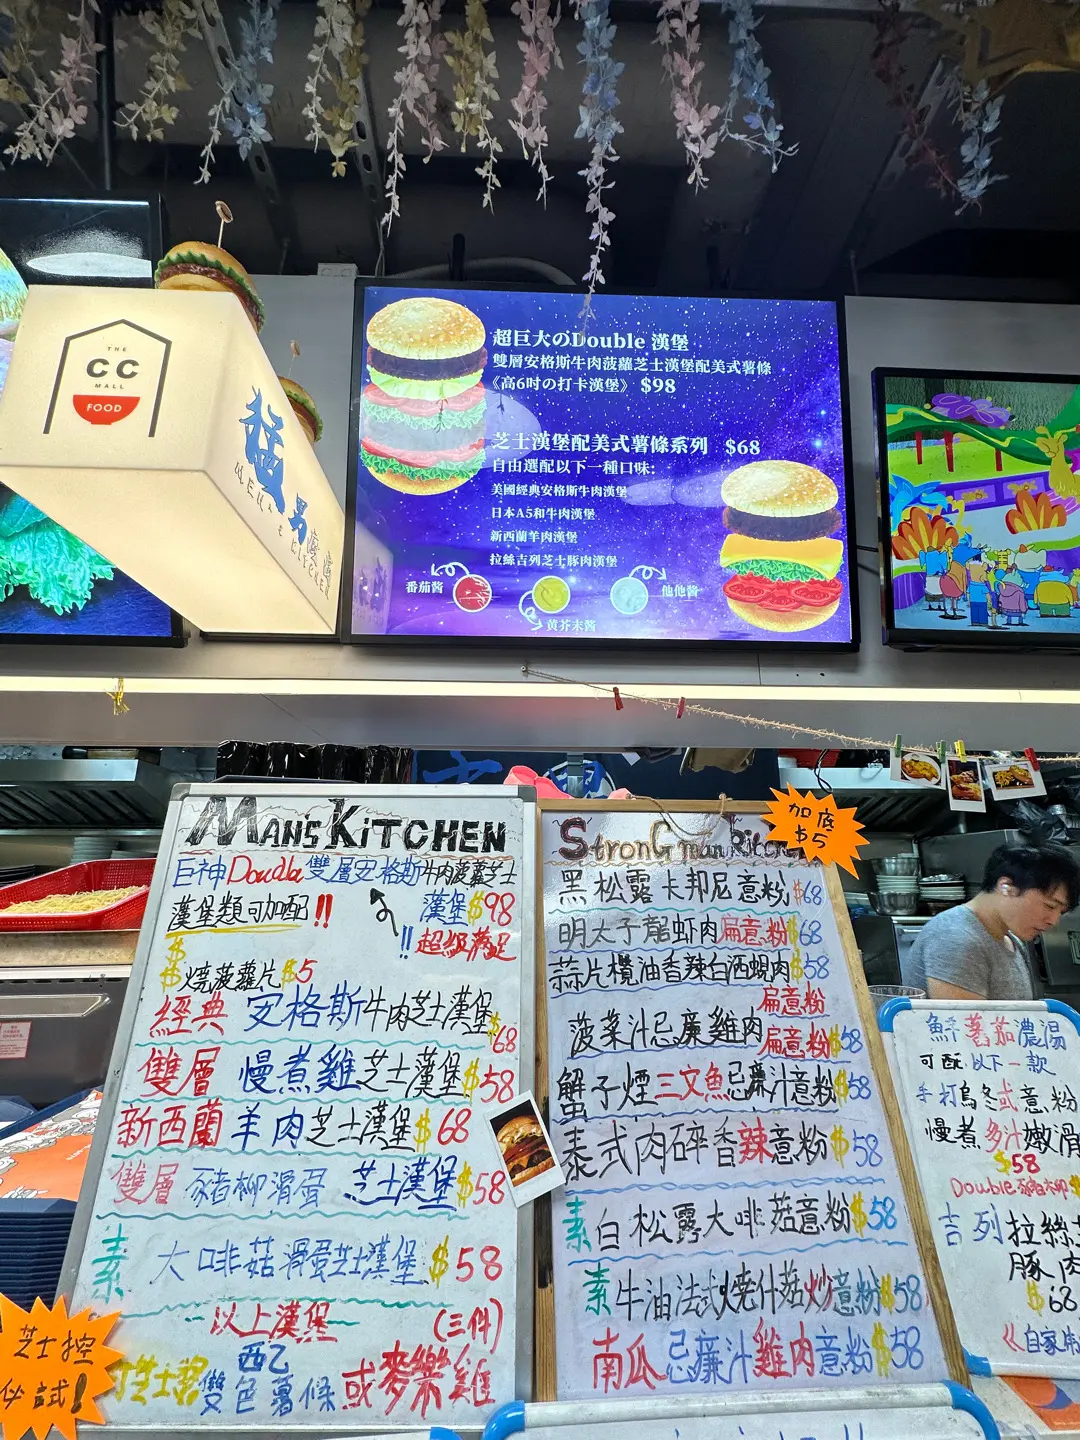 THE
CC
MALL
FOOD
猛男廚房
超巨大のDouble 漢堡
雙層安格斯牛肉菠蘿芝士漢堡配美式薯條
《高6吋の打卡漢堡》 $98
芝士漢堡配美式薯條系列 $68
自由選配以下一種口味:
美國經典安格斯牛肉漢堡
日本A5和牛肉漢堡
新西蘭羊肉漢堡
拉絲吉列芝士豚肉漢堡
番茄醬
黄芥末醬
他他醬
MAN'S KiTCHEN
巨神Double雙層安格斯牛肉菠蘿芝士
漢堡$98
漢堡類可加配!!
!!超級滿足
燒菠蘿片$5
經典 安格斯牛肉芝士漢堡$68
雙層 慢煮雞芝士漢堡$58
新西蘭羊肉芝士漢堡$68
雙層 豬柳滑蛋 芝士漢堡$58
素 大啡菇滑蛋芝士漢堡$58
以上漢堡 (三件)
西乙
雙色薯條或麥樂雞
芝士控
必試!
StronG man Kitchen
加底
$5
黑松露卡邦尼意粉$68
明太子龍蝦肉扁意粉$68
蒜片欖油香辣白酒蜆肉$58
扁意粉
菠菜汁忌廉雞肉扁意粉$58
蟹子煙三文魚忌廉汁意粉$58
泰式肉碎香辣意粉$58
素白松露大啡菇意粉$58
素牛油法式燒什菇炒意粉$58
南瓜忌廉汁雞肉意粉$58
鮮蕃茄濃湯
可配以下一款
手打烏冬或意粉
慢煮多汁嫩滑
$58
Double豬柳$
吉列拉絲芝
豚肉
$68
《自家